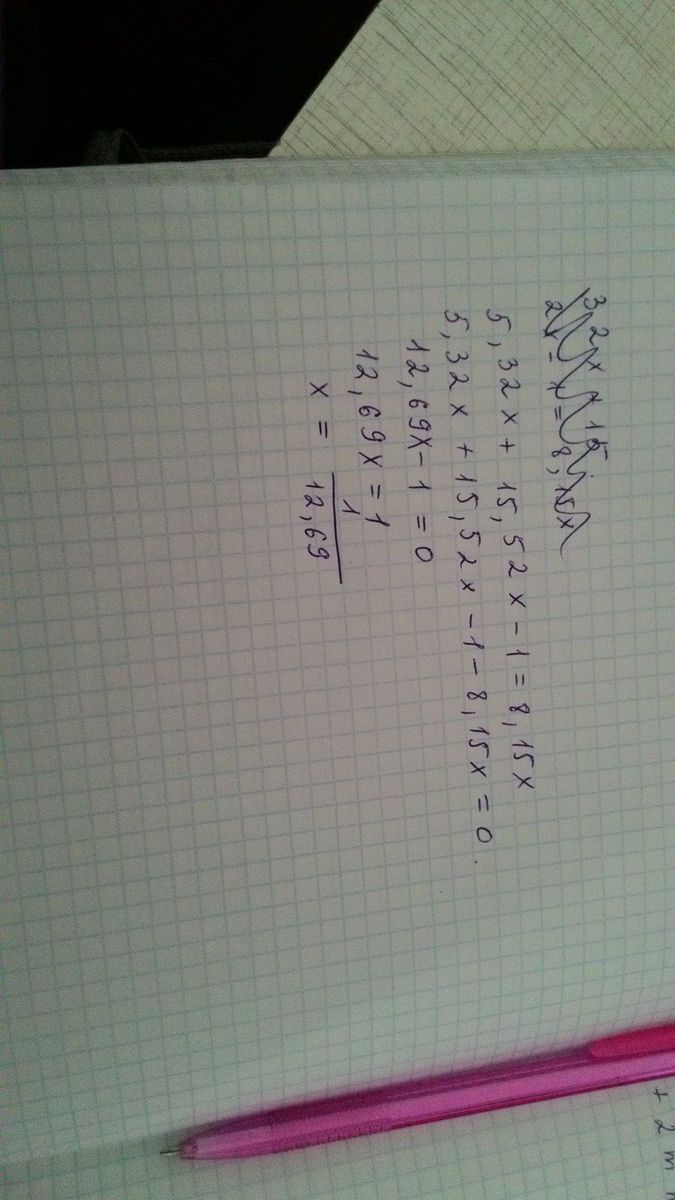 5,32x + 15,52x - 1 = 8,15x
5,32x + 15,52x - 1 - 8,15x = 0.
12,69x - 1 = 0
12,69x = 1
x = 1/12,69
+ 2 m